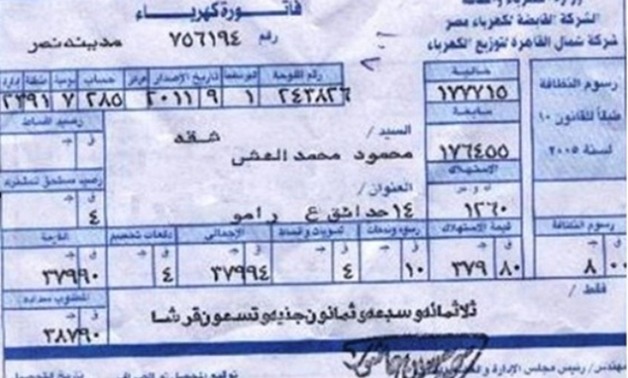 فاتورة كهرباء
الشركة القابضة لكهرباء مصر
رقم ٧٥٦١٩٤ مدينه نصر
شركة شمال القاهرة لتوزيع الكهرباء
رقم اللوحة تاريخ الإصدار مركز حساب يومية منطقة إدارة
٢٤٣٨٢٦ ١ ٩ ٢٠١١ ٢٨٥ ٧ ٩١ ٢٣
حالية
١٧٧٧١٥
سابقة
١٧٦٤٥٥
الاستهلاك
ك و س
١٢٦٠
رسوم النظافة
طبقاً للقانون ١٠
لسنة ٢٠٠٥
السيد / شقه
محمود محمد العشى
العنوان /
١٤ حدائق ع رامو
رصيد مستحق
٤
رسوم النظافة قيمة الاستهلاك تسويات و اقساط الإجمالى دفعات تخصم
٨ ٠٠ ٣٧٩ ٨٠ ١٠ ٤ ٣٧٩٩٤ ٤ ٣٧٩٩٠
فقط /
المطلوب سداده
٣٨٧٩٠
ثلاثمائه وسبعه وثمانون جنيه وتسعون قرشا
مهندس / رئيس مجلس الإدارة و